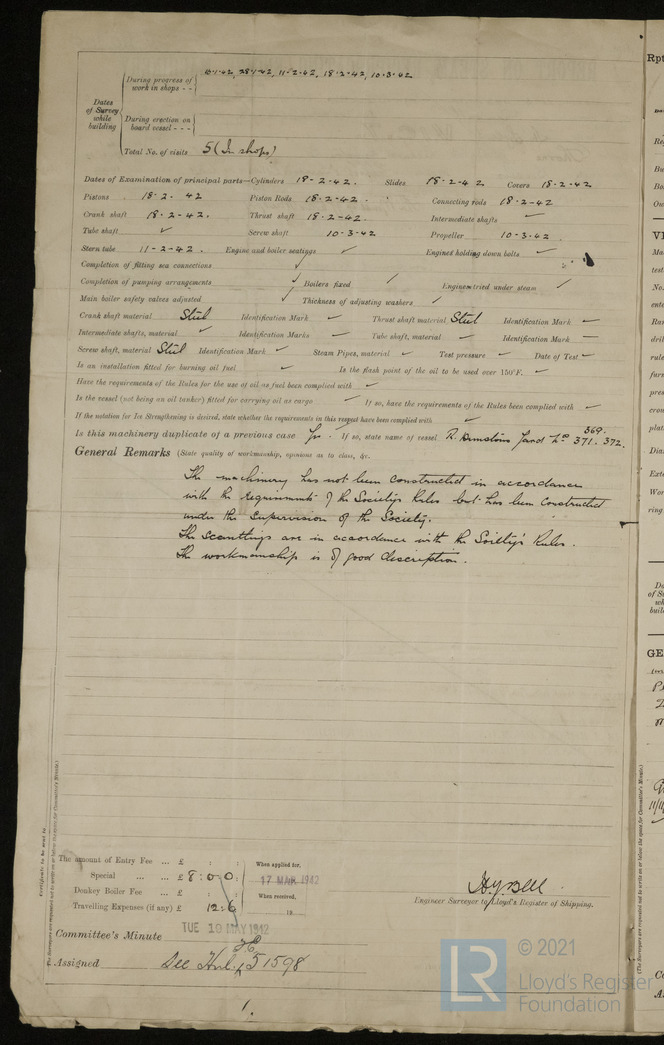 During progress of work in shops - - 28.1.42, 11-2-42, 18-2-42, 10-3-42
Dates of Survey while building
During erection on board vessel - - -
Total No. of visits 5 (In shops)
Dates of Examination of principal parts—Cylinders 18-2-42. Slides 18-2-42 Covers 18-2-42
Pistons 18-2-42 Piston Rods 18-2-42. Connecting rods 18-2-42
Crank shaft 18-2-42. Thrust shaft 18-2-42. Intermediate shafts ✓
Tube shaft ✓ Screw shaft 10-3-42 Propeller 10-3-42.
Stern tube 11-2-42. Engine and boiler seatings ✓ Engines holding down bolts ✓
Completion of fitting sea connections ✓
Completion of pumping arrangements ✓ Boilers fixed ✓ Engines tried under steam ✓
Main boiler safety valves adjusted ✓ Thickness of adjusting washers ✓
Crank shaft material Steel Identification Mark ✓ Thrust shaft material Steel Identification Mark ✓
Intermediate shafts, material ✓ Identification Marks ✓ Tube shaft, material ✓ Identification Mark ✓
Screw shaft, material Steel Identification Mark ✓ Steam Pipes, material ✓ Test pressure ✓ Date of Test ✓
Is an installation fitted for burning oil fuel ✓ Is the flash point of the oil to be used over 150°F. ✓
Have the requirements of the Rules for the use of oil as fuel been complied with ✓
Is the vessel (not being an oil tanker) fitted for carrying oil as cargo ✓ If so, have the requirements of the Rules been complied with ✓
If the notation for Ice Strengthening is desired, state whether the requirements in this respect have been complied with ✓
Is this machinery duplicate of a previous case Yes. If so, state name of vessel R. Dunstons Yard No 369. 371. 372.
General Remarks (State quality of workmanship, opinions as to class, &c.
The machinery has not been constructed in accordance
with the requirements of the Society's Rules but has been constructed
under the supervision of the Society.
The scantlings are in accordance with the Society's Rules.
The workmanship is of good description.
Certificate to be sent to
(The Surveyors are requested not to write on or below the space for Committee's Minute.)
The amount of Entry Fee ... £ : :
Special ... ... £ 8:0:0:
Donkey Boiler Fee ... £ : :
Travelling Expenses (if any) £ 12:6
When applied for,
17 MAR 1942
When received,
19
H.J. Bell
Engineer Surveyor to Lloyd's Register of Shipping.
Committee's Minute TUE 19 MAY 1942
Assigned See Hul. 51598
© 2021
Lloyd's Register
Foundation
LR
Rpt
GE